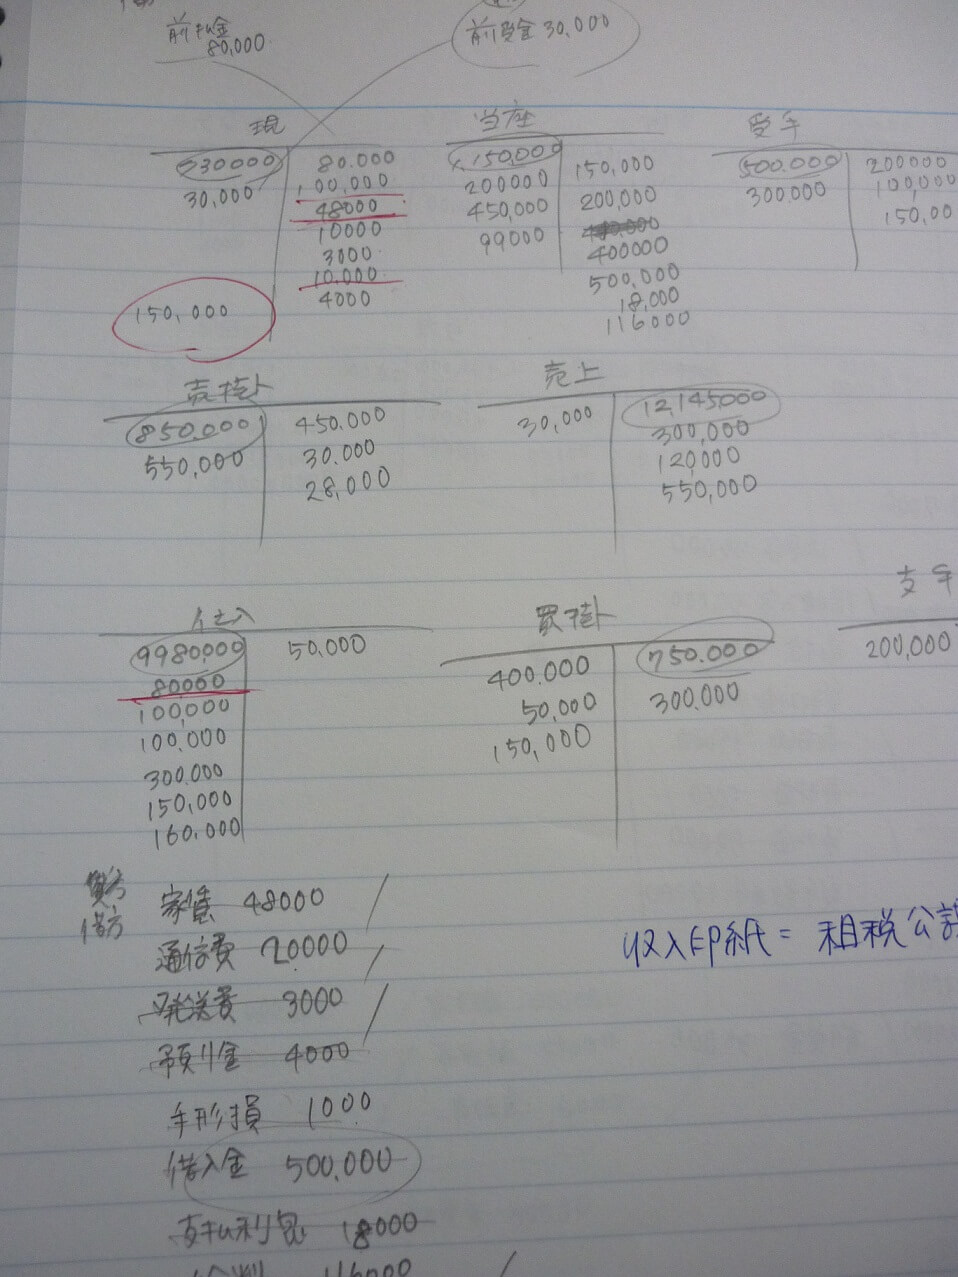 前払金
80,000.
前受金 30,000
現
当座
受手
230000
30,000
150,000
80.000
100,000
48000
10000
3000
10.000
4000
1,150,000
200000
450,000
99000
150,000
200,000
400000
500,000
18,000
116000
500.000
300,000
200000
100,000
150,00
売掛
850.000
550,000
450.000
30.000
28,000
売上
30,000
12,145,000
300,000
120,000
550,000
仕入
9980,000
80000
100,000
100.000
300.000
150,000
160,000
50,000
買掛
400.000
50,000
150,000
750.000
300,000
支手
200,000
借方
家賃 48000
通信費 20000
発送費 3000
預り金 4000
手形損 1000
借入金 500,000
支払利息 18000
116000
収入印紙 = 租税公課